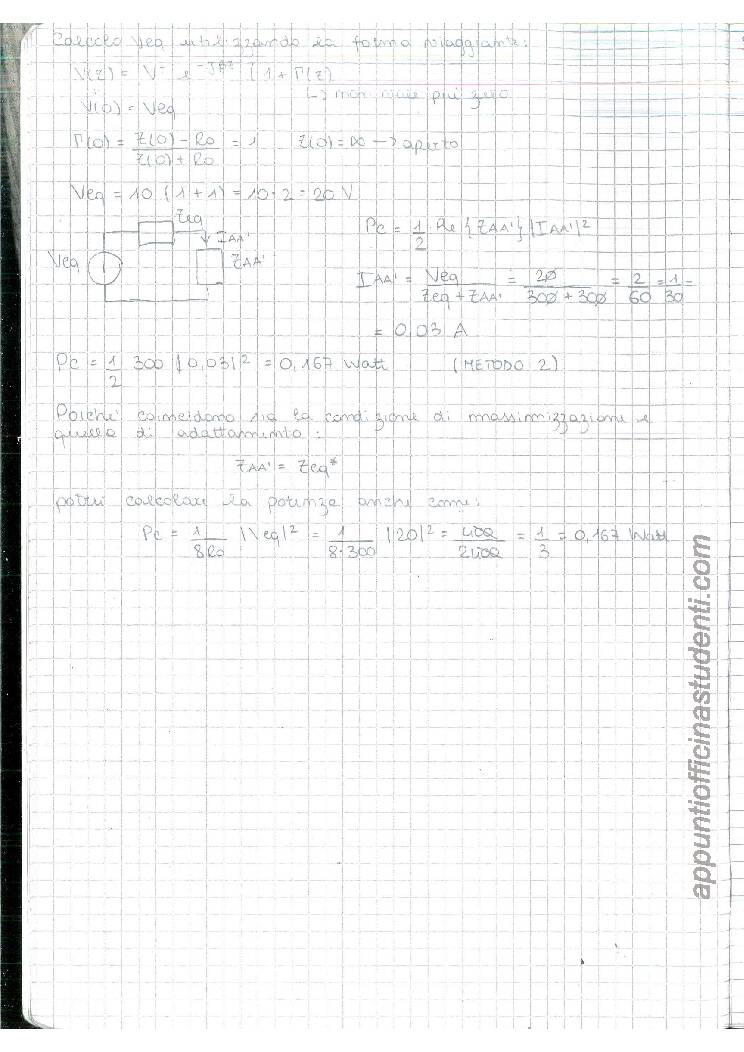 Calcolo Veq utilizzando la forma viaggiante:
V(z) = V⁻ e^-Jβz [1 + Γ(z)
↳ non vale più zero
V(0) = Veq
Γ(0) = Z(0) - R0 / Z(0) + R0 = 1 Z(0) = ∞ → aperto
Veq = 10 (1 + 1) = 10 · 2 = 20 V
Zeq
IAA'
Veq
ZAA'
Pc = 1/2 Re {ZAA'} |IAA'|²
IAA' = Veq / Zeq + ZAA' = 20 / 300 + 300 = 2/60 = 1/30 =
= 0,03 A
Pc = 1/2 300 |0,03|² = 0,167 Watt (METODO 2)
Poiché coincidono sia la condizione di massimizzazione e
quella di adattamento:
ZAA' = Zeq*
potrei calcolare la potenza anche come:
Pc = 1/8R0 |Veq|² = 1/8·300 |20|² = 400/2400 = 1/3 = 0,167 Watt
appuntiofficinastudenti.com